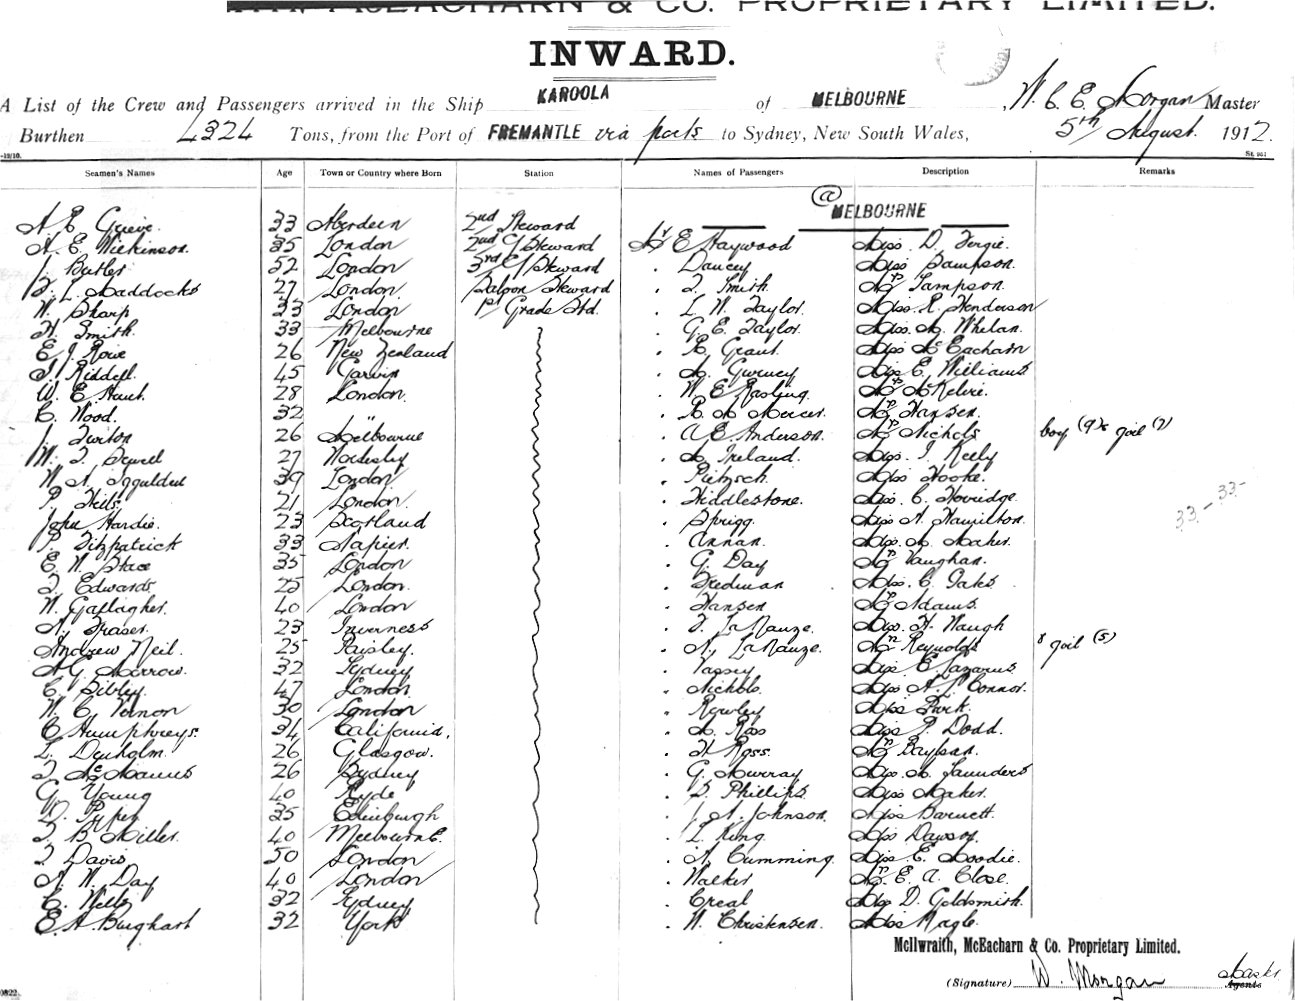 McEACHARN & CO. PROPRIETARY LIMITED.
INWARD.
A List of the Crew and Passengers arrived in the Ship KAROOLA of MELBOURNE, W. C. E. Morgan Master
Burthen 4324 Tons, from the Port of FREMANTLE via ports to Sydney, New South Wales, 5th August. 1912.
Seamen's Names Age Town or Country where Born Station Names of Passengers Description Remarks
@ MELBOURNE
A E Grieve. 33 Aberdeen 2nd Steward
A. E. Wilkinson. 35 London 2nd Steward Mr E Haywood Miss D. Fergie.
J. Butler 52 London 3rd Steward . Daucey Miss Sampson.
L. Maddocks 27 London. Saloon Steward . T. Smith Mrs Sampson.
W. Sharp 33 London 1st Grade Std. . L. W. Taylor. Miss. R. Henderson
H. Smith. 33 Melbourne . G. E. Taylor. Miss. M. Whelan.
E. J. Rowe 26 New Zealand . R. Grant. Miss McEacharn
J. Riddell. 45 . M. Gurney Miss E. Williams
W. E Hunt. 28 London. . W. E. Rasling. Mrs McKelvie.
C. Wood. 32 " . R. M. Mercer. Mrs Hansen.
J. Turton 26 Melbourne . A. E. Anderson. Mrs Nichols boy (9) & girl (7)
W. J. Sewell 27 . M. Ireland. Miss. I. Keely
W. A. Iggulden 39 London . Pietzsch. Miss Hooke.
P. 21 London. . Hiddlestone. Miss. C. Horridge.
John Hardie. 23 Scotland . Sprigg. Miss A. Hamilton. 33 - 33 -
P. Fitzpatrick 33 Napier. . Annan. Miss. M. Maher.
E. W. Stace 35 London . G. Day Mrs Vaughan.
J. Edwards 25 London. . Fredman Miss. C. Oaks
W. Gallagher. 40 London . Hansen Mrs Adams.
A. Fraser. 23 Inverness . F. LaNauze. Miss. H. Waugh
Andrew Neil. 25 Paisley. . A. LaNauze. Mrs Reynolds & girl (5)
A G. Morrow. 32 Sydney . Vassey Miss E. Lazarus
C. Sibley. 47 London . Nichols. Miss A. P. Connor.
W. C. Vernon 30 London . Rowley Miss Park.
C Humphreys. 34 California. . M. Ross Miss P. Dodd.
L. Denholm. 26 Glasgow. . H. Ross. Mrs
J. McManus 26 Sydney . G. Murray Miss. M. Saunders
G. Young 40 Ryde . S. Phillips Miss Maher.
D. Piper 35 Edinburgh . J. A. Johnson. Miss Barnett.
J. B. Miller. 40 Melbourne. . L. King. Miss Dawson.
J. Davis 50 London . A. Cumming. Miss E. Moodie.
A. W. Day 40 London . Walker Mrs. E. A. Close.
C. Wells 32 Sydney . Creal Miss D. Goldsmith.
E. A. Burghart 32 York . W. Christensen. Miss Nagle.
McIlwraith, McEacharn & Co. Proprietary Limited.
(Signature) W. Morgan Master Agents